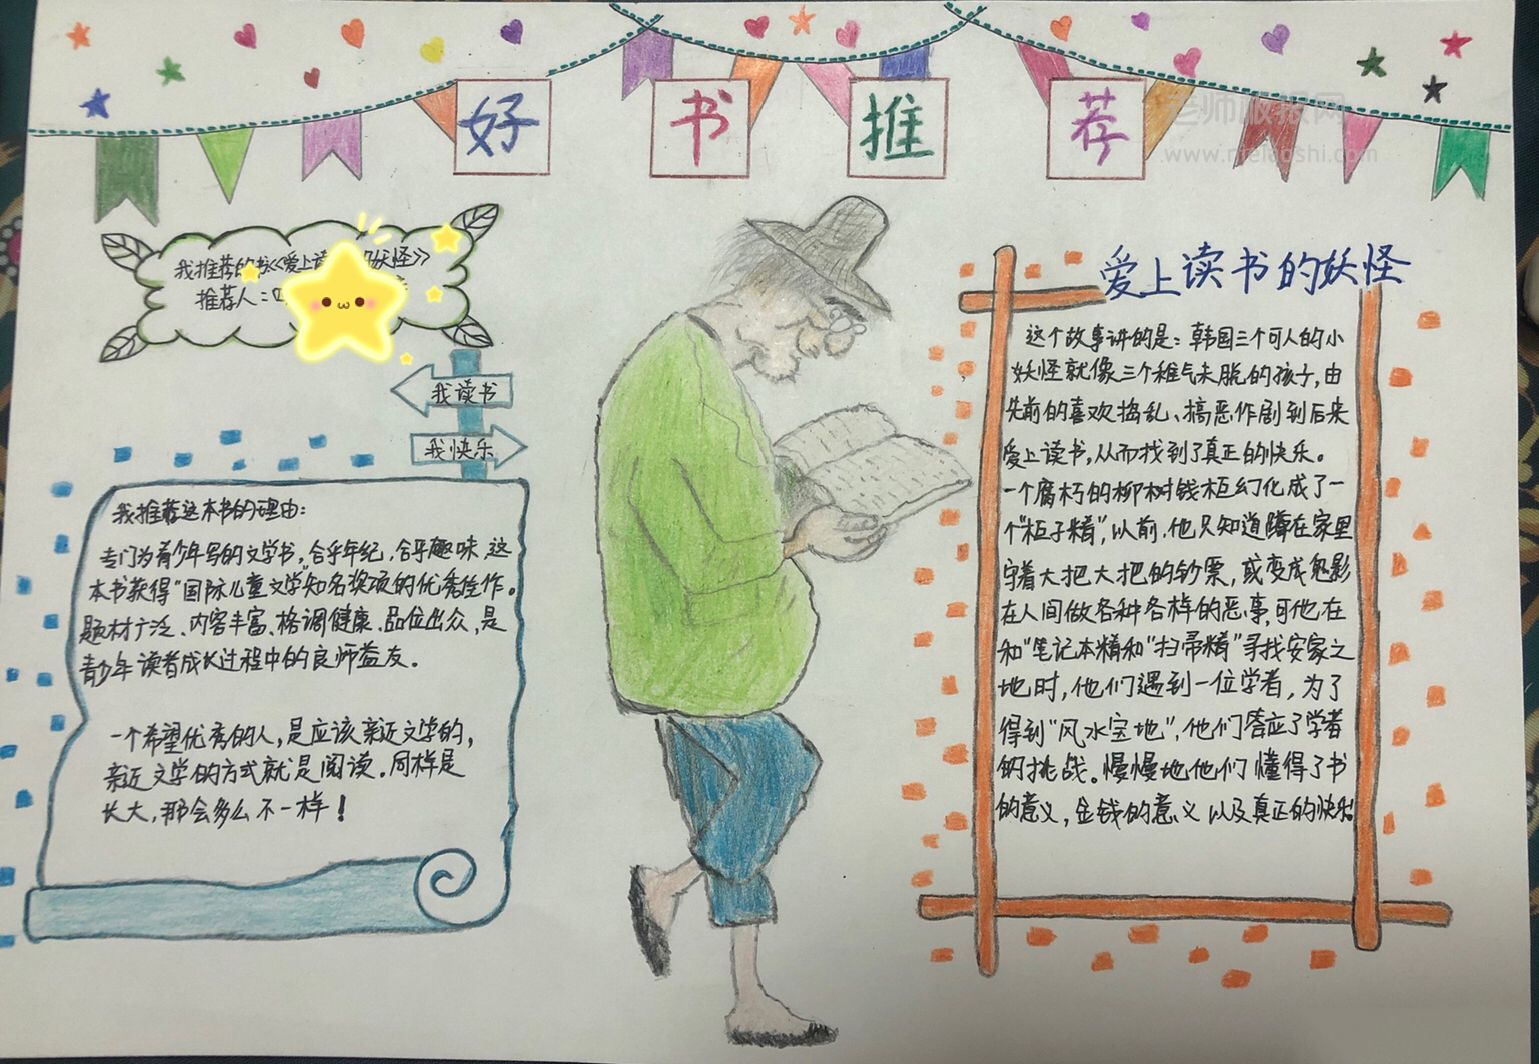 好书推荐
老师板报网
www.nielaoshi.com
我推荐的书《爱上读 的妖怪》
推荐人：
我读书
我快乐
我推荐这本书的理由：
专门为青少年写的文学书，合乎年纪、合乎趣味，这
本书获得“国际儿童文学”知名奖项的优秀佳作。
题材广泛、内容丰富、格调健康、品位出众，是
青少年读者成长过程中的良师益友。
一个希望优秀的人，是应该亲近文学的，
亲近文学的方式就是阅读。同样是
长大，那会多么不一样！
爱上读书的妖怪
这个故事讲的是：韩国三个可人的小
妖怪就像三个稚气未脱的孩子，由
先前的喜欢捣乱、搞恶作剧到后来
爱上读书，从而找到了真正的快乐。
一个腐朽的柳树钱柜幻化成了一
个“柜子精”，以前，他只知道蹲在家里
守着大把大把的钞票，或变成鬼影
在人间做各种各样的恶事，可他在
和“笔记本精和“扫帚精”寻找安家之
地时，他们遇到一位学者，为了
得到“风水宝地”，他们答应了学者
的挑战。慢慢地他们懂得了书
的意义，金钱的意义以及真正的快乐。